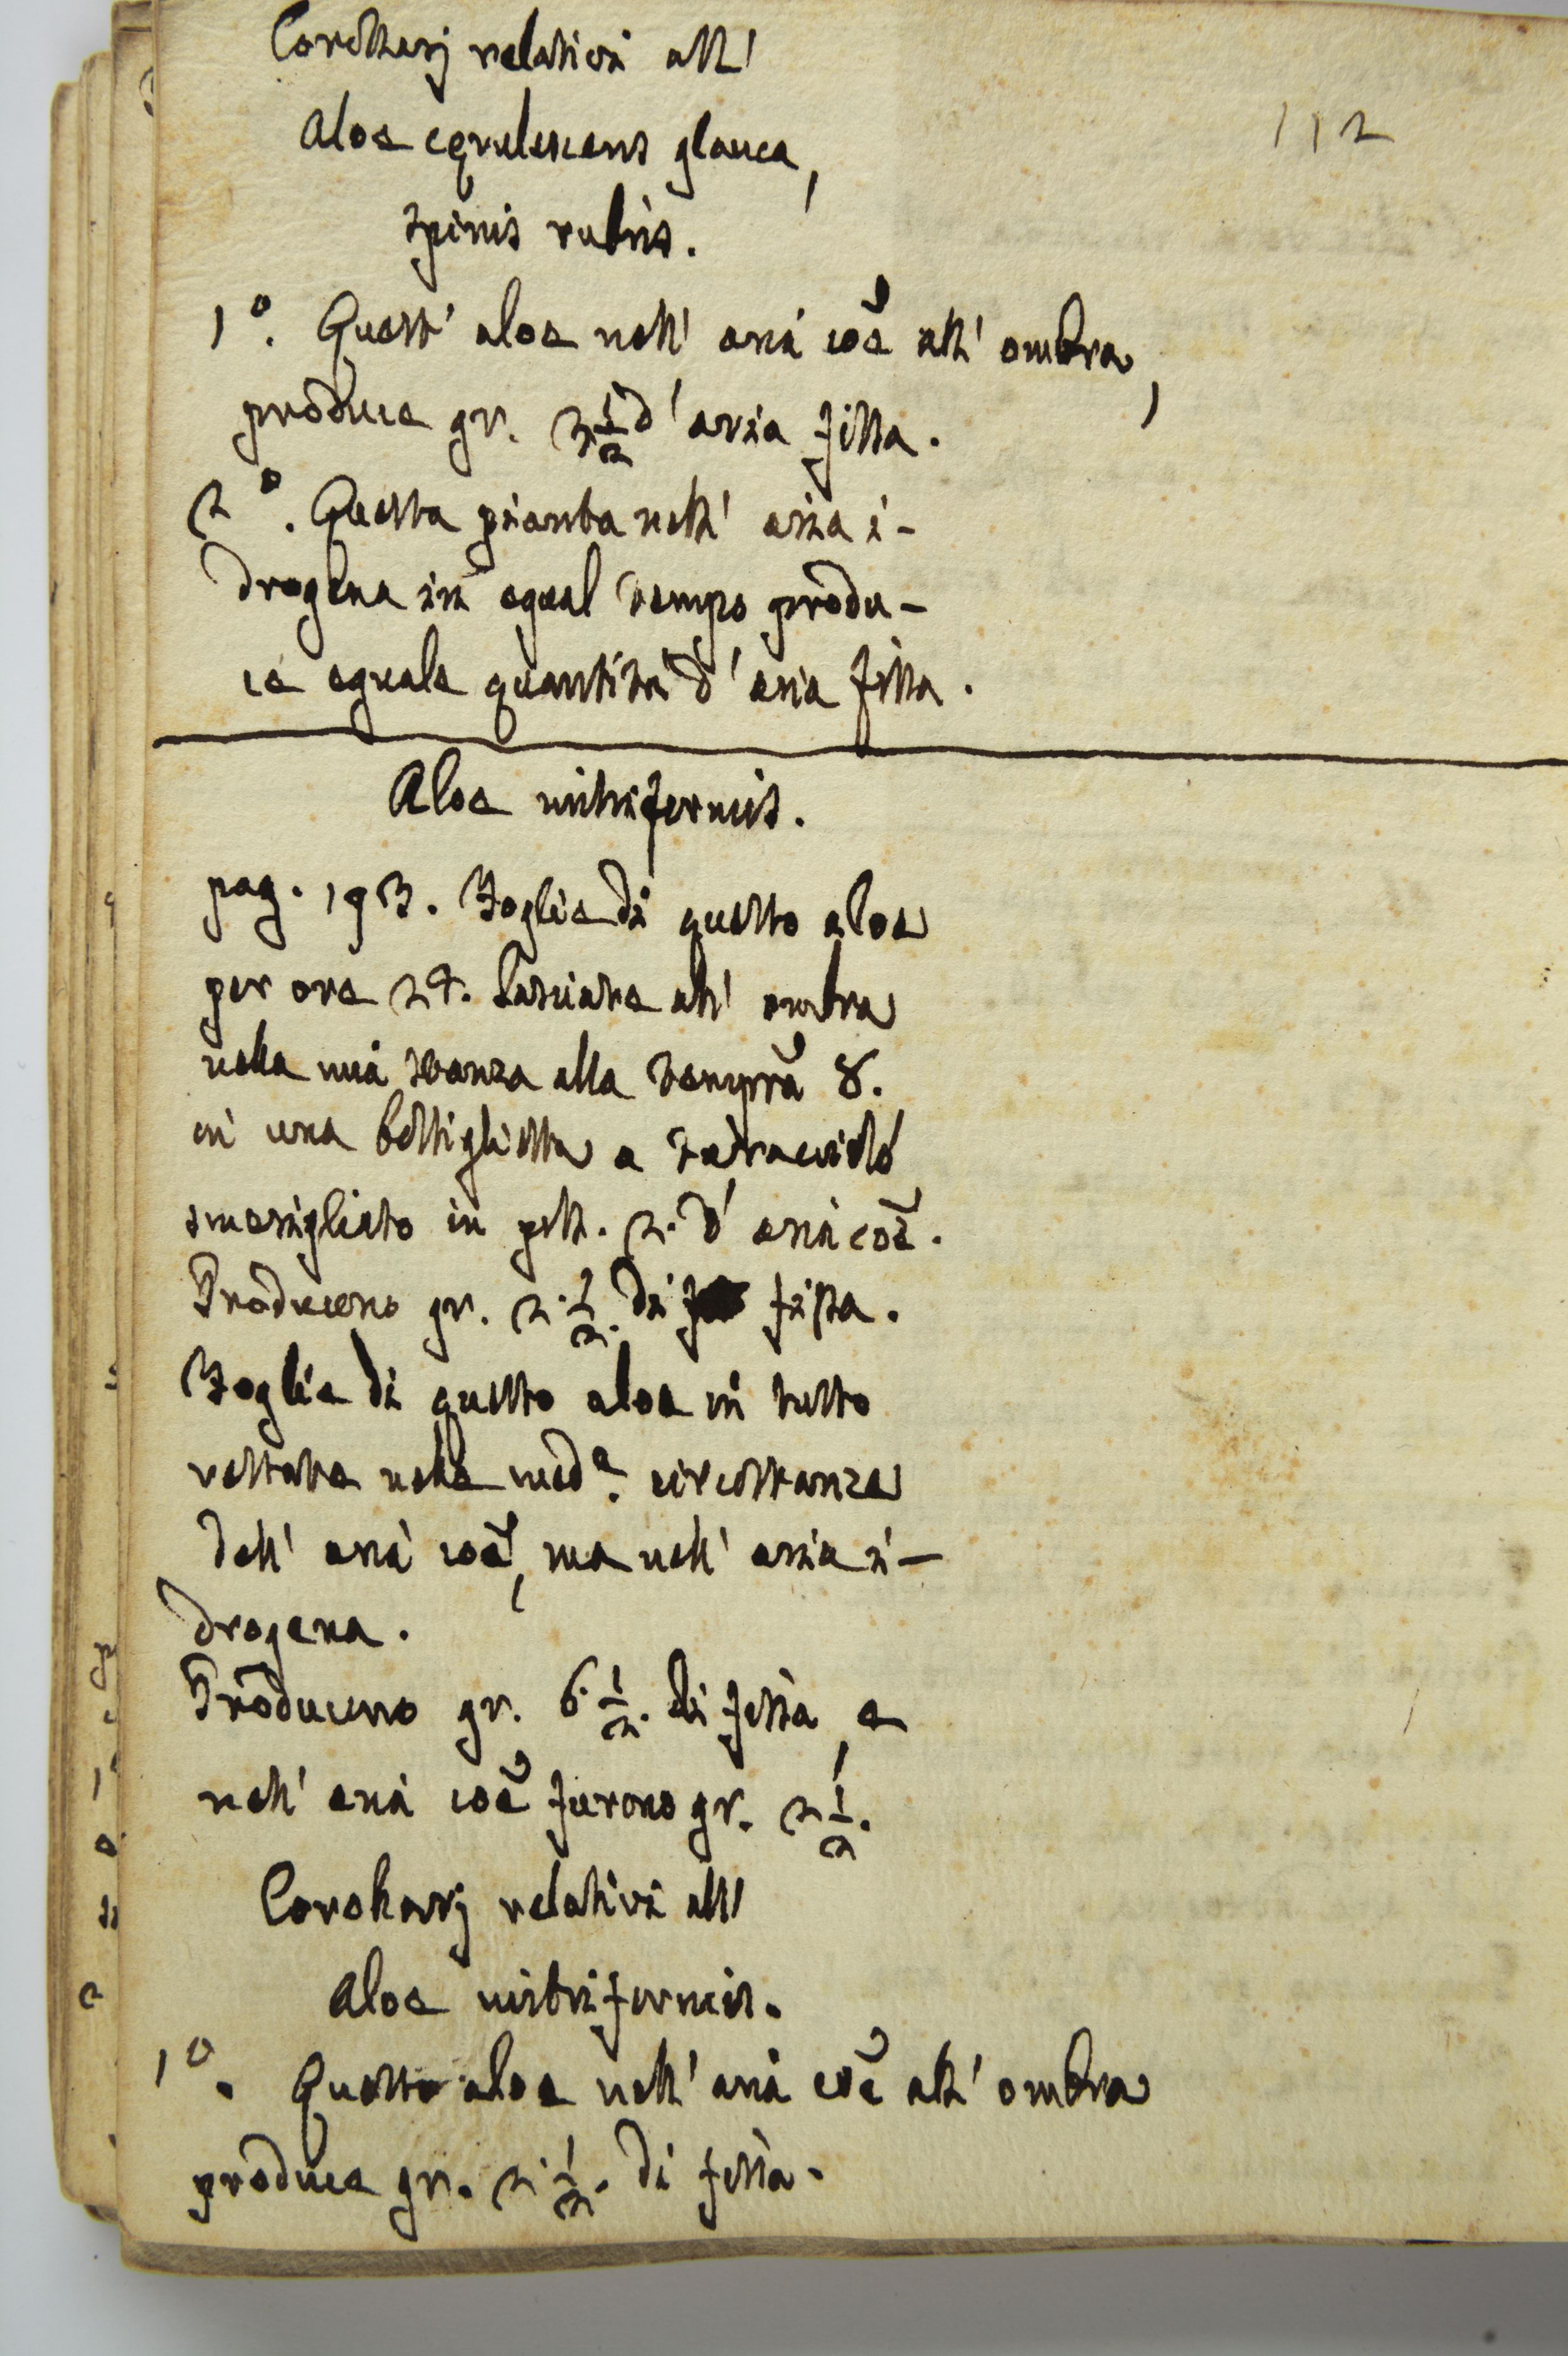 Corollarj relativi all'
Aloe cęrulescens glauca,
spinis rubris.
112
1º. Quest' aloe nell' aria coẽ all' ombra,
produce gr. 3 1/2 d' aria fissa.
2º. Questa pianta nell' aria i-
drogena in egual tempo produ-
ce eguale quantità d' aria fissa.
Aloe mitriformis.
pag. 193. Foglie di questo aloe
per ore 24. lasciate all' ombra
nella mia stanza alla temprã 8.
in una bottiglietta a turacciolo
smerigliato in poll. 2. d' aria coẽ.
Producono gr. 2. 1/2. di fissa.
Foglie di questo aloe in tutto
restate nelle medᵉ. circostanze
dell' aria coẽ, ma nell' aria i-
drogena.
Producono gr. 6. 1/2. di fissa, e
nell' aria coẽ furono gr. 2 1/2.
Corollarj relativi all'
Aloe mitriformis.
1º. Questo aloe nell' aria coẽ all' ombra
produce gr. 2. 1/2. di fissa.